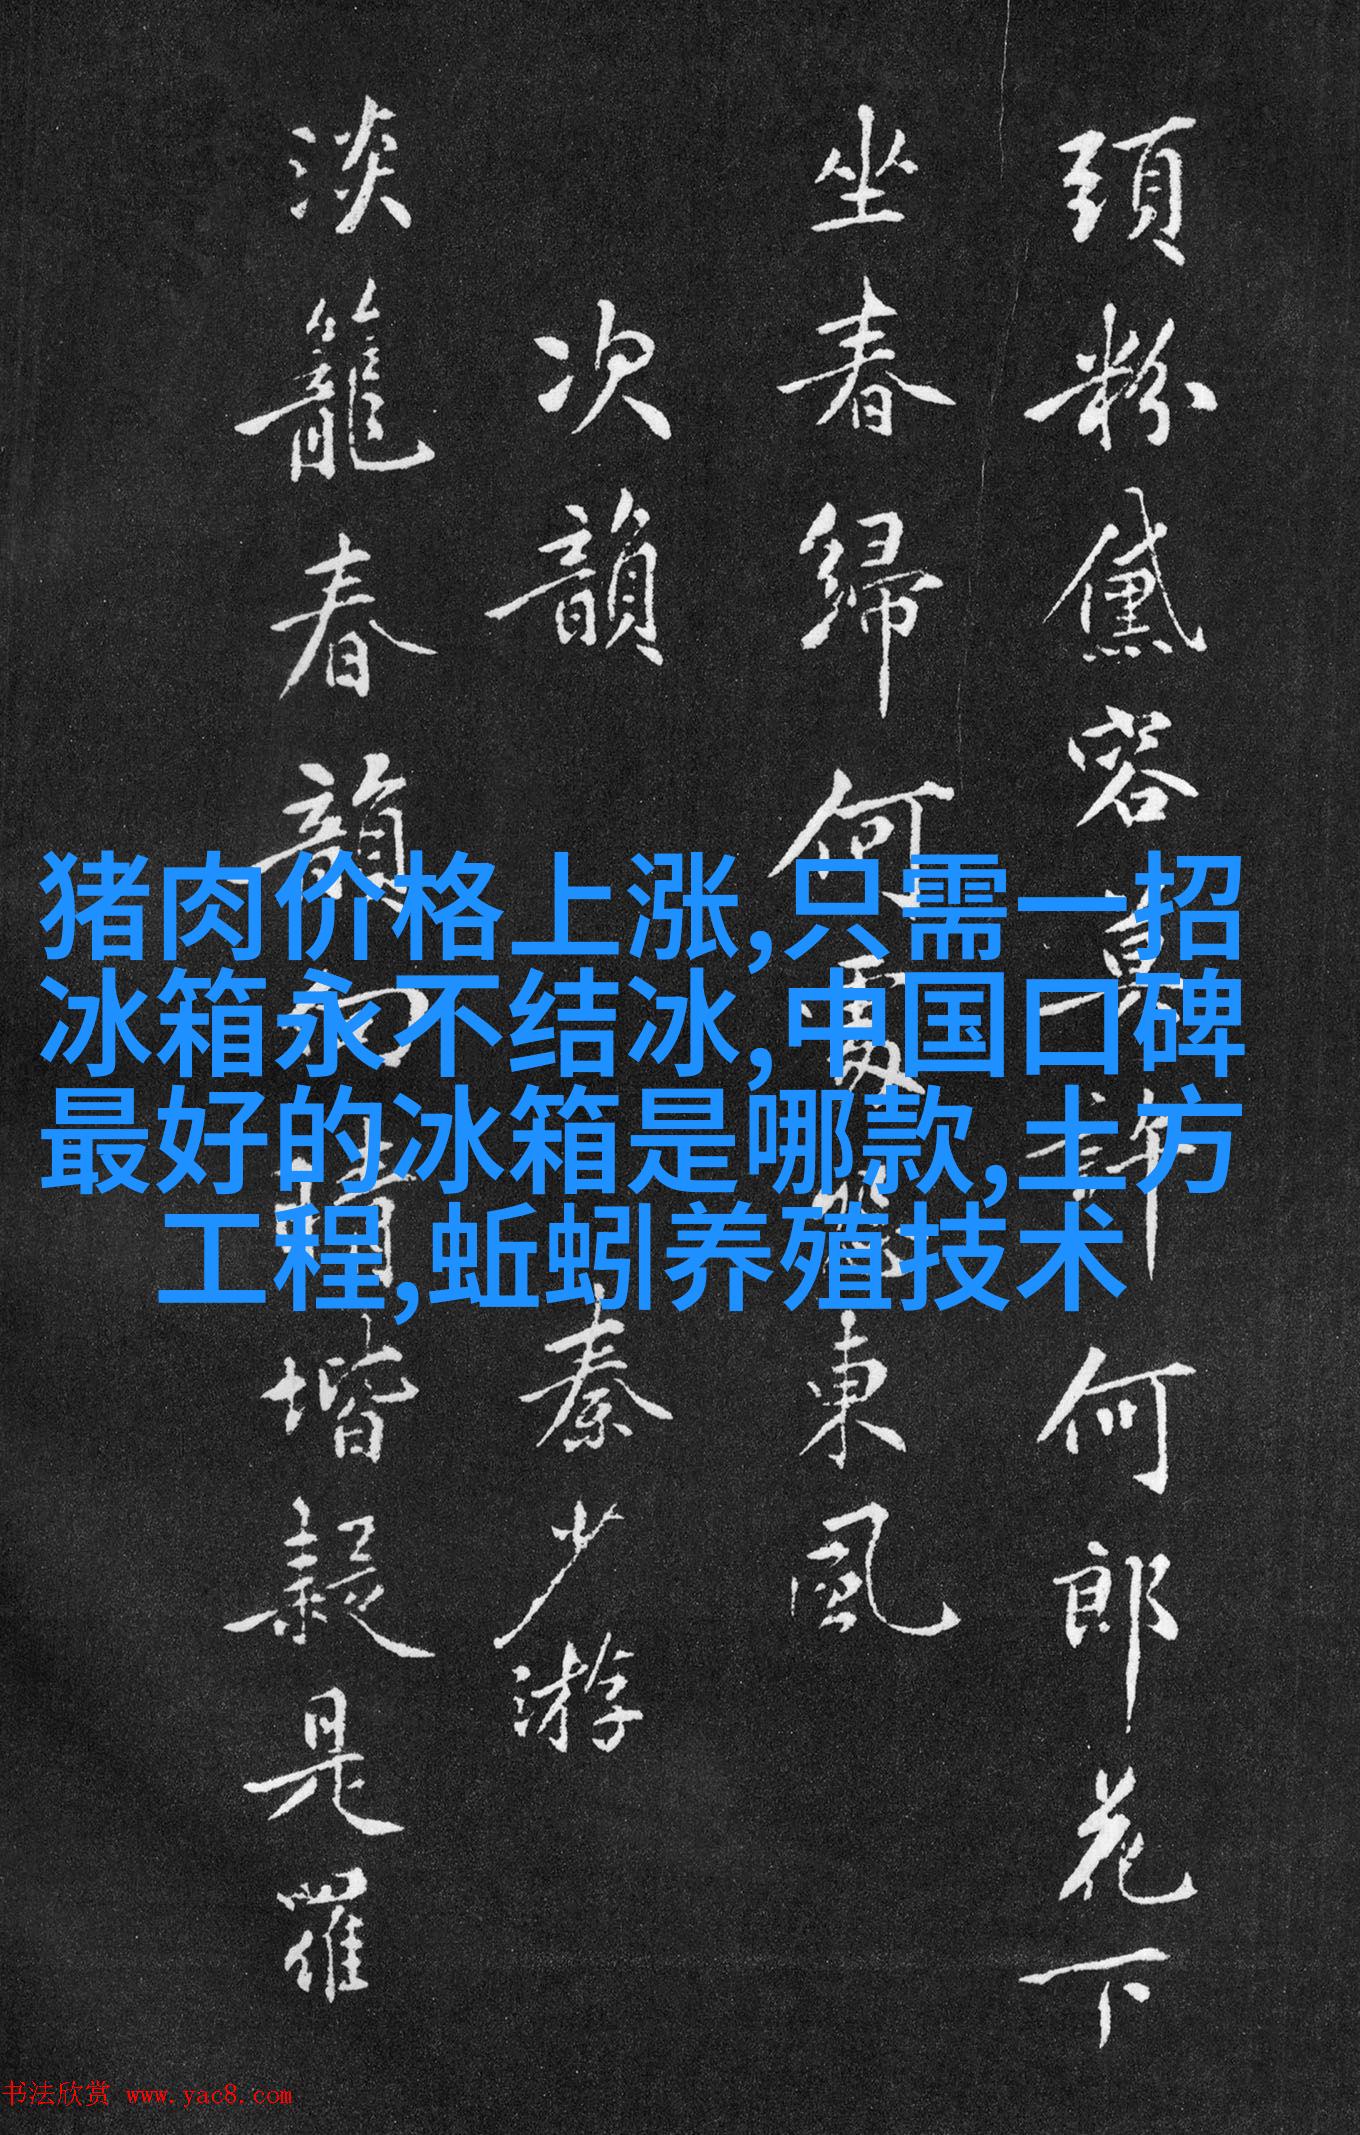 頭粉黛容莫許何郎花下
坐春歸何處發東風
次韻秦少游
淡籠春韻向晴堦疑是羅
猪肉价格上涨,只需一招
冰箱永不结冰,中国口碑
最好的冰箱是哪款,土方
工程,蚯蚓养殖技术
书法欣赏 www.yac8.com